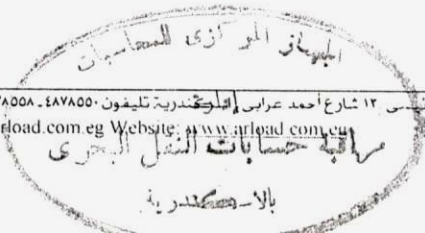 الجهاز المركزى للمحاسبات
١٢ شارع أحمد عرابى الإسكندرية تليفون: ٤٨٧٨٥٥٠ـ
rload.com.eg Website: www.arload.com.eg
مراقبة حسابات النقل البحرى
بالاسكندرية